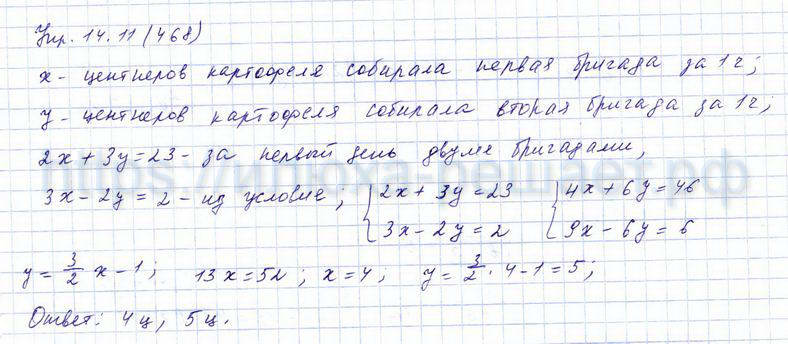 Упр. 14.11 (468)
x - центнеров картофеля собирала первая бригада за 1ч;
y - центнеров картофеля собирала вторая бригада за 1ч;
2x + 3y = 23 - за первый день двумя бригадами,
3x - 2y = 2 - из условие; { 2x + 3y = 23 { 4x + 6y = 46
3x - 2y = 2 9x - 6y = 6
y = 3/2 x - 1; 13x = 52; x = 4, y = 3/2 · 4 - 1 = 5;
Ответ: 4ц, 5ц.
https://илюха-решает.рф